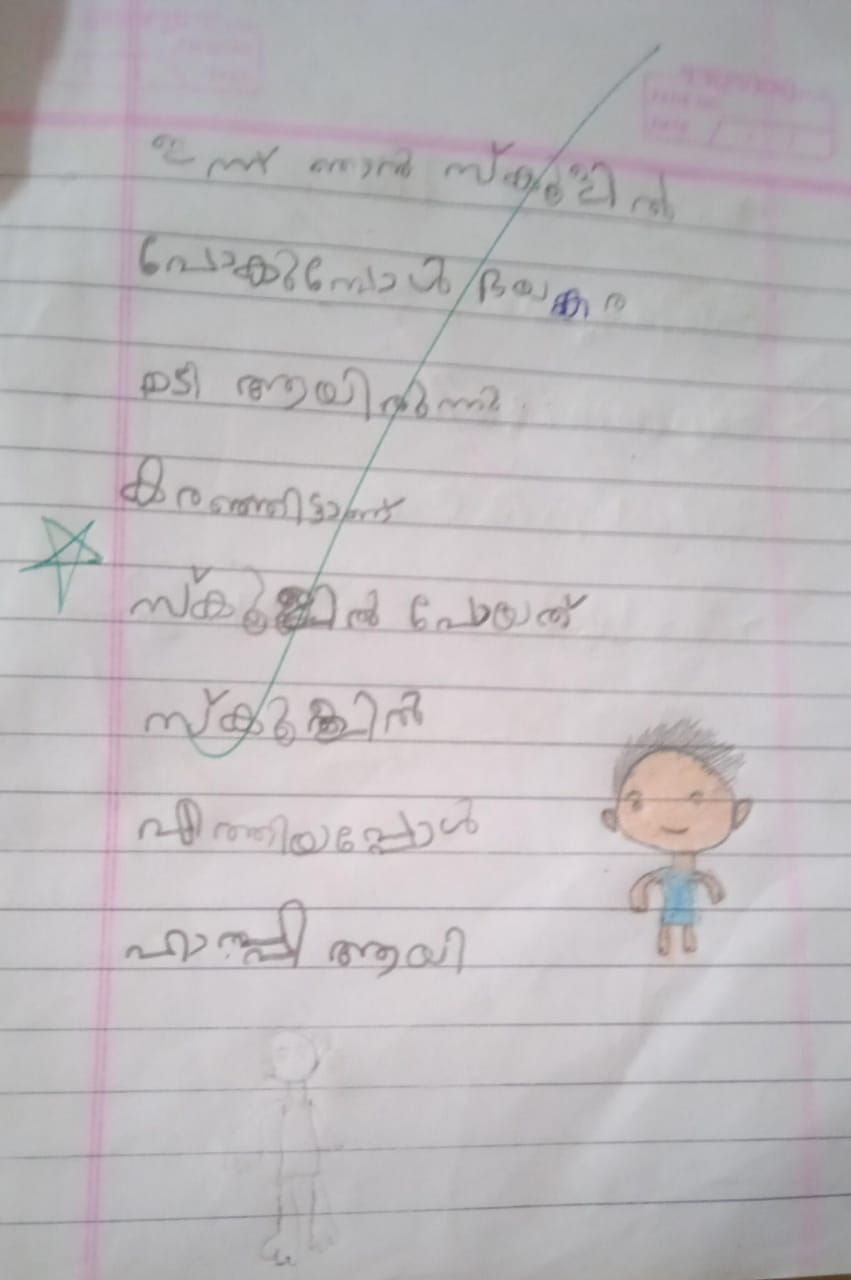 ഇന്ന് ഞാൻ സ്കൂളിൽ
പോകുമ്പോൾ ഭയങ്കര
മടി ആയിരുന്നു.
കരഞ്ഞിട്ടാണ്
സ്കൂളിൽ പോയത്
സ്കൂളിൽ
എത്തിയപ്പോൾ
ഹാപ്പി ആയി